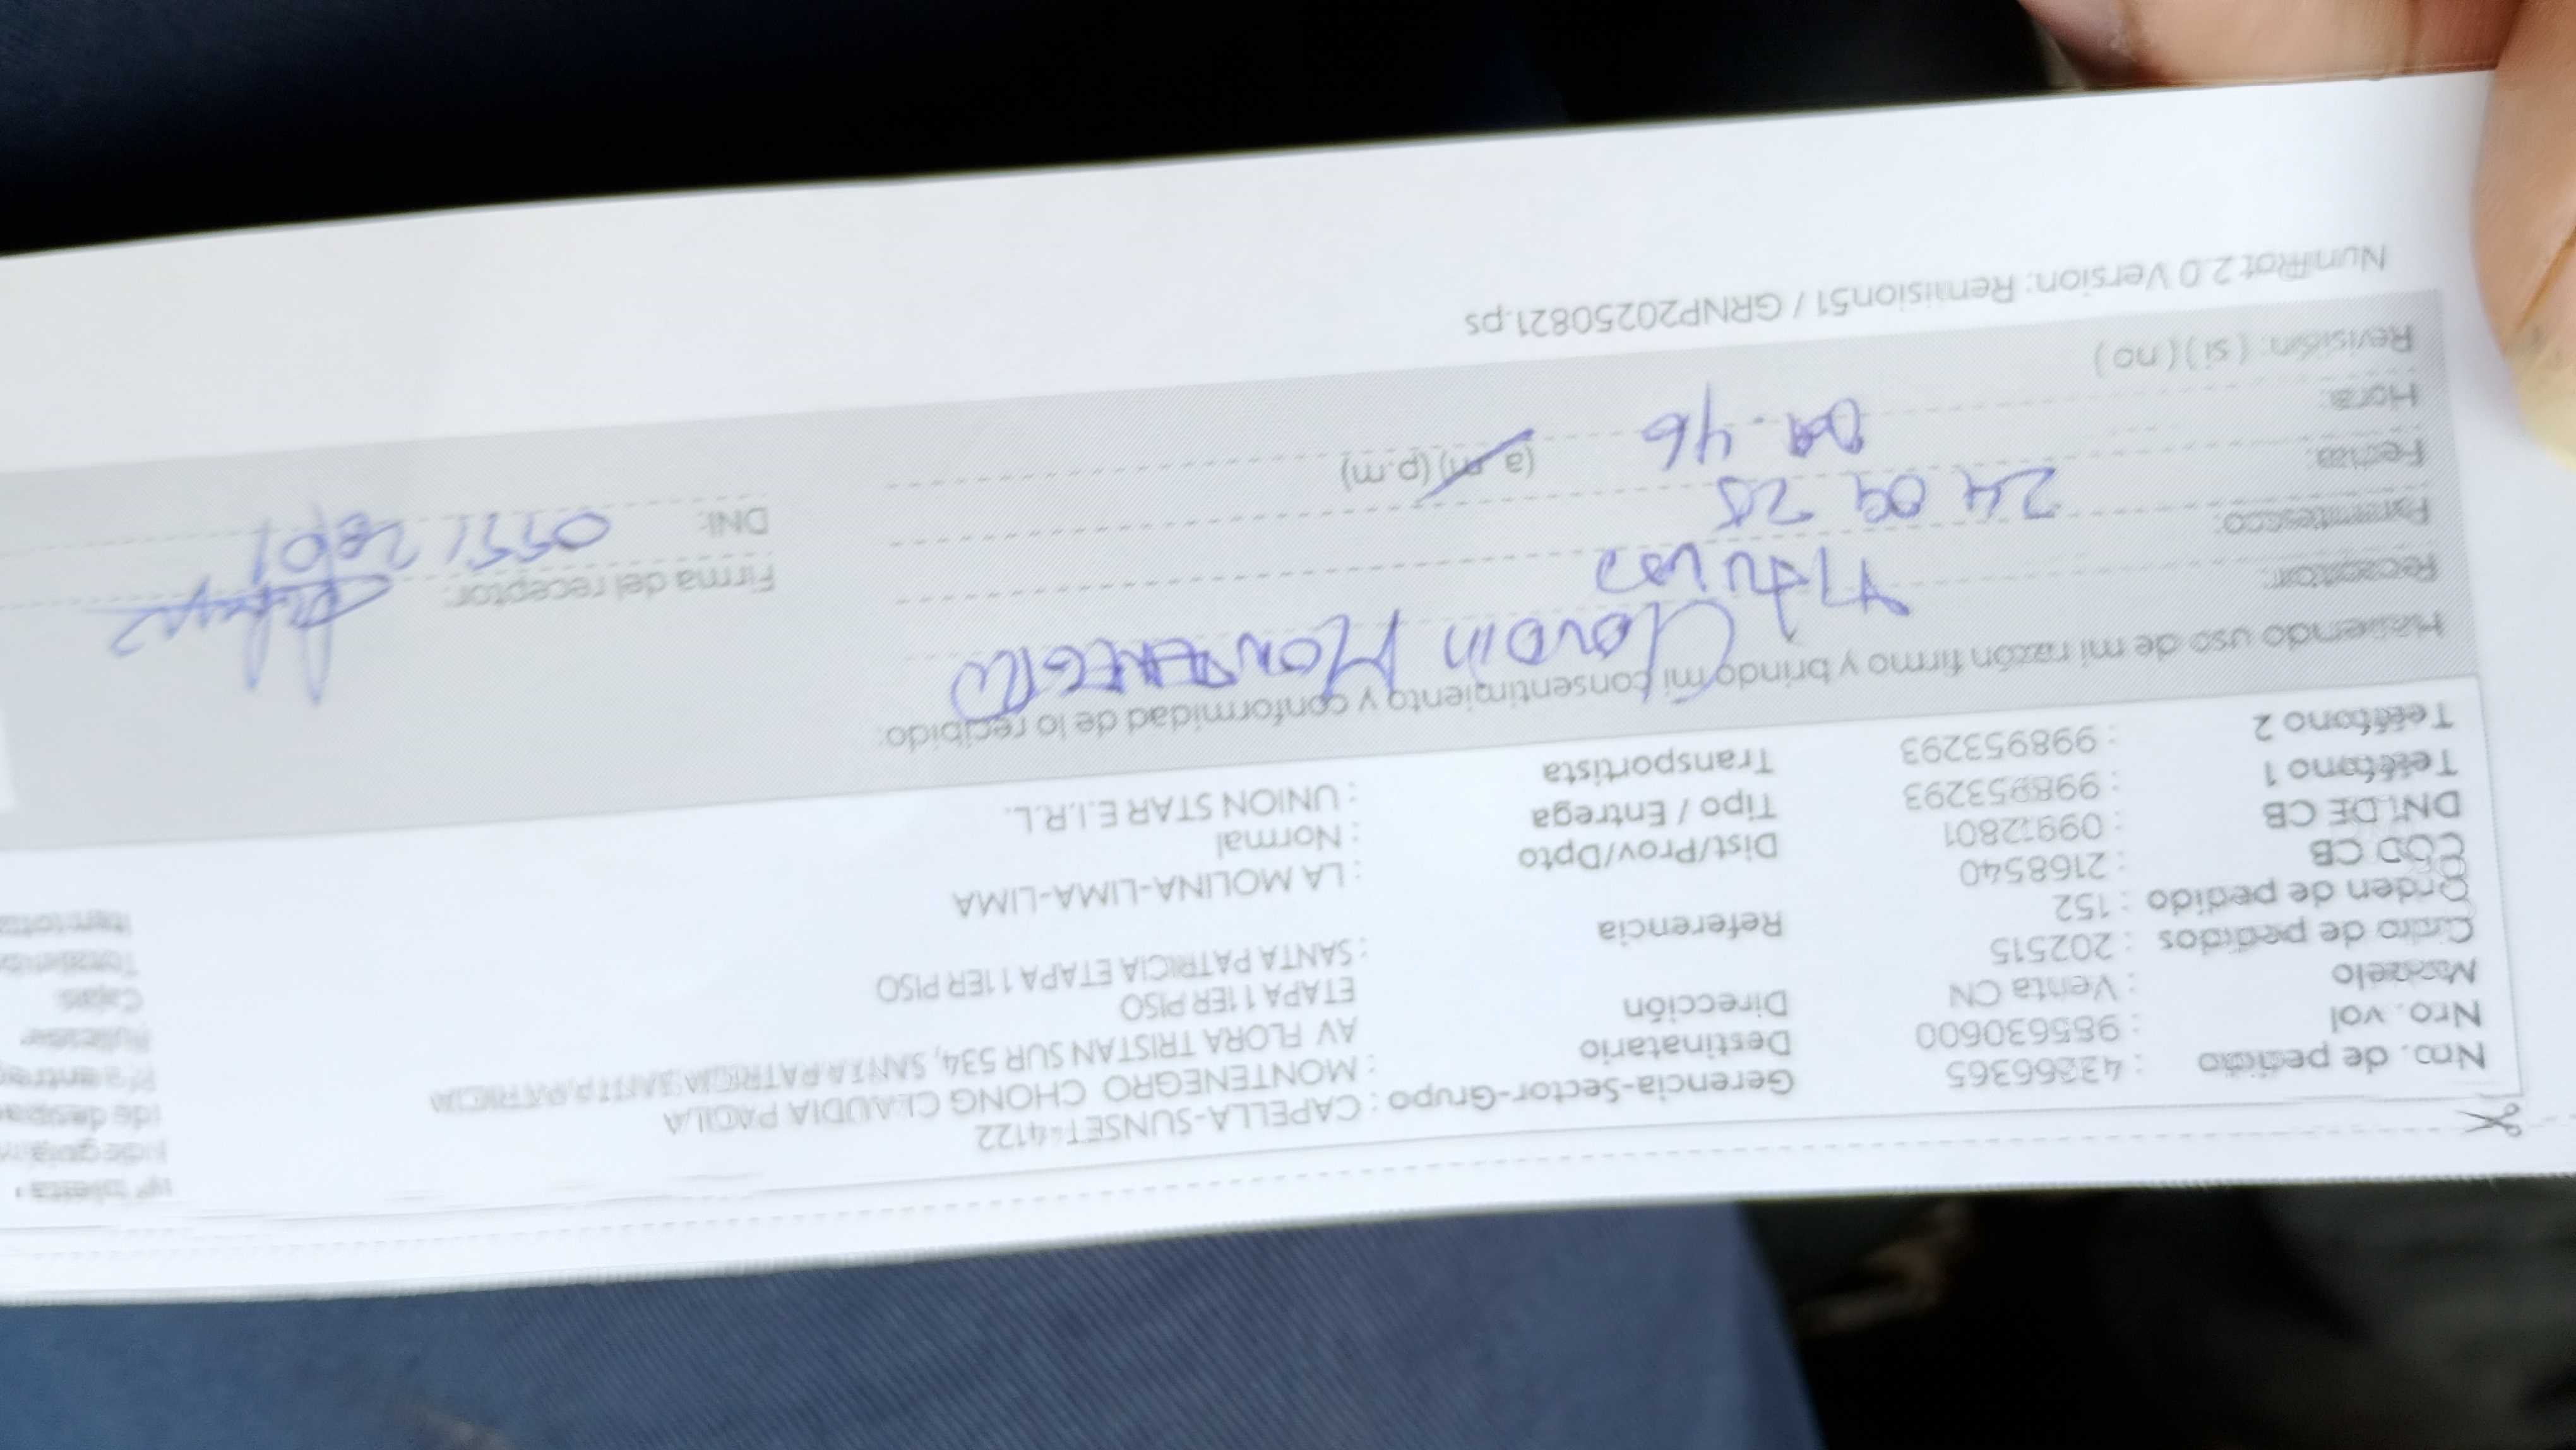 Nro. de pedido : 43266365
Nro. vol : 985630600
Modelo : Venta CN
Ciclo de pedidos : 202515
Orden de pedido : 152
COD CB : 2168540
DNI DE CB :
Teléfono 1 : 998953293
Teléfono 2 : 998953293
Gerencia-Sector-Grupo : CAPELLA-SUNSET-4122
Destinatario : MONTENEGRO CHONG CLAUDIA PAOLA
Dirección AV FLORA TRISTAN SUR 534, SANTA PATRICIA SANTA PATRICIA
ETAPA 1 1ER PISO
Referencia : SANTA PATRICIA ETAPA 1 1ER PISO
Dist/Prov/Dpto : LA MOLINA-LIMA-LIMA
Tipo / Entrega : Normal
Transportista : UNION STAR E.I.R.L.
Haciendo uso de mi razón firmo y brindo mi consentimiento y conformidad de lo recibido:
Receptor: Claudia MONTENEGRO
Parentesco: Titular
Fecha: 24 09 25
Hora: 09.46 (a.m) (p.m)
Revisión: ( si ) ( no )
Firma del receptor:
DNI:
2.0 Version: Remision51 / GRNP20250821.ps